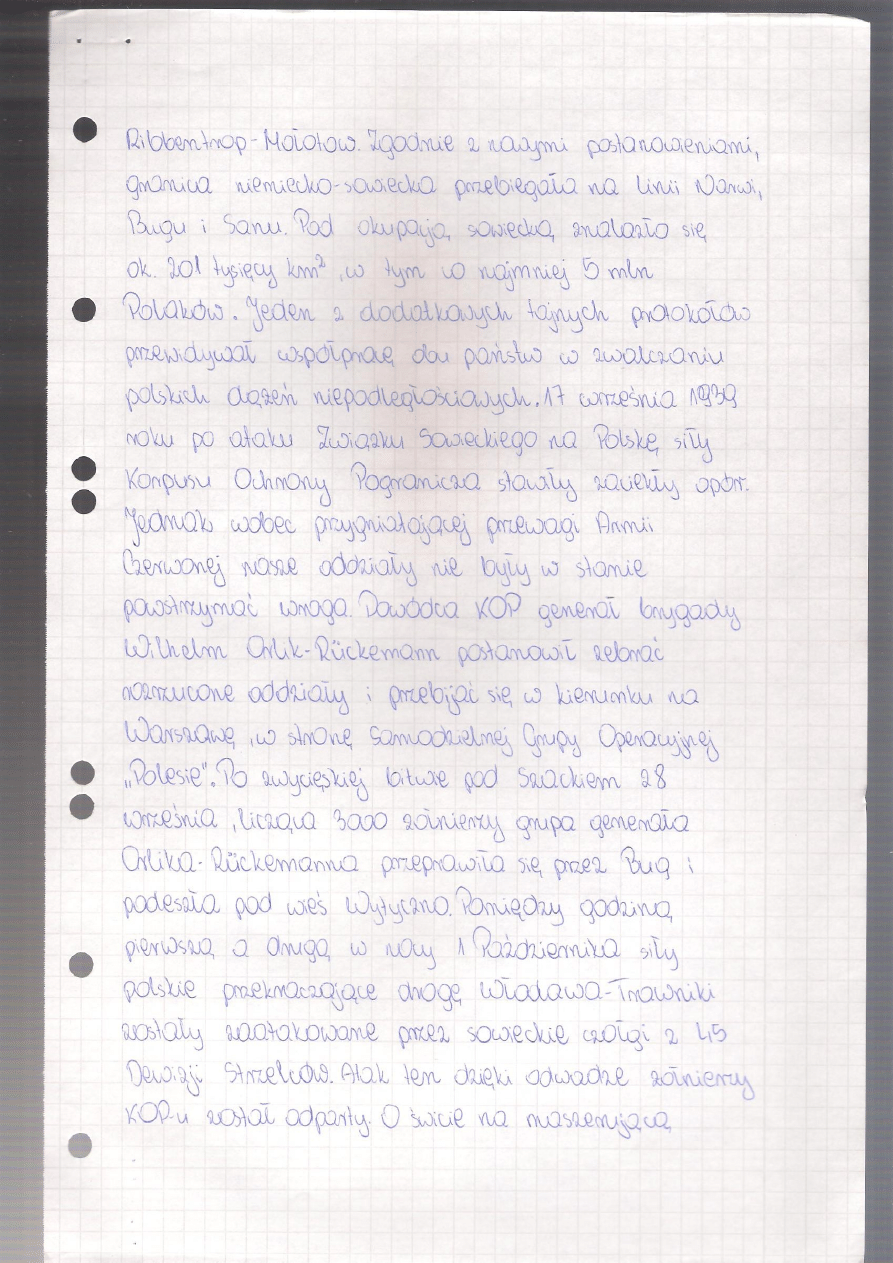 Ribbentrop-Mołotow. Zgodnie z nowymi postanowieniami,
granica niemiecko-sowiecka przebiegała na linii Narwi,
Bugu i Sanu. Pod okupacją sowiecką znalazło się
ok. 201 tysięcy km², w tym co najmniej 5 mln
Polaków. Jeden z dodatkowych tajnych protokołów
przewidywał współpracę obu państw w zwalczaniu
polskich dążeń niepodległościowych. 17 września 1939
roku po ataku Związku Sowieckiego na Polskę siły
Korpusu Ochrony Pogranicza stawiły zaciekły opór.
Jednak wobec przygniatającej przewagi Armii
Czerwonej nasze oddziały nie były w stanie
powstrzymać wroga. Dowódca KOP generał brygady
Wilhelm Orlik-Rückemann postanowił zebrać
rozrzucone oddziały i przebijać się w kierunku na
Warszawę, w stronę Samodzielnej Grupy Operacyjnej
„Polesie". Po zwycięskiej bitwie pod Szackiem 28
września, licząca 3000 żołnierzy grupa generała
Orlika-Rückemanna przeprawiła się przez Bug i
podeszła pod wieś Wytyczno. Pomiędzy godziną
pierwszą a drugą w nocy 1 Października siły
polskie przekraczające drogę Włodawa-Trawniki
zostały zaatakowane przez sowieckie czołgi z 45
Dewizji Strzelców. Atak ten dzięki odwadze żołnierzy
KOP-u został odparty. O świcie na maszerującą